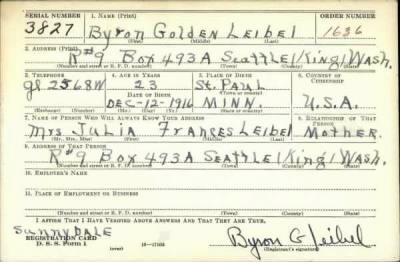 SERIAL NUMBER 1. NAME (Print) ORDER NUMBER
3827 Byron Golden Leibel 1636
(First) (Middle) (Last)
2. ADDRESS (Print)
R#9 Box 493A Seattle/King/Wash.
(Number and street or R. F. D. number) (Town) (County) (State)
3. TELEPHONE 4. AGE IN YEARS 5. PLACE OF BIRTH 6. COUNTRY OF CITIZENSHIP
gl 2568W 23 St. Paul
DATE OF BIRTH (Town or county)
DEC-12-1916 MINN. U.S.A.
(Exchange) (Number) (Mo.) (Day) (Yr.) (State or country)
7. NAME OF PERSON WHO WILL ALWAYS KNOW YOUR ADDRESS 8. RELATIONSHIP OF THAT PERSON
Mrs Julia Frances Leibel Mother.
(Mr., Mrs., Miss) (First) (Middle) (Last)
9. ADDRESS OF THAT PERSON
R#9 Box 493A Seattle/King/Wash.
(Number and street or R. F. D. number) (Town) (County) (State)
10. EMPLOYER'S NAME
11. PLACE OF EMPLOYMENT OR BUSINESS
(Number and street or R. F. D. number) (Town) (County) (State)
I AFFIRM THAT I HAVE VERIFIED ABOVE ANSWERS AND THAT THEY ARE TRUE.
SUNNYDALE
REGISTRATION CARD Byron G Leibel
D. S. S. Form 1 (over) (Registrant's signature)